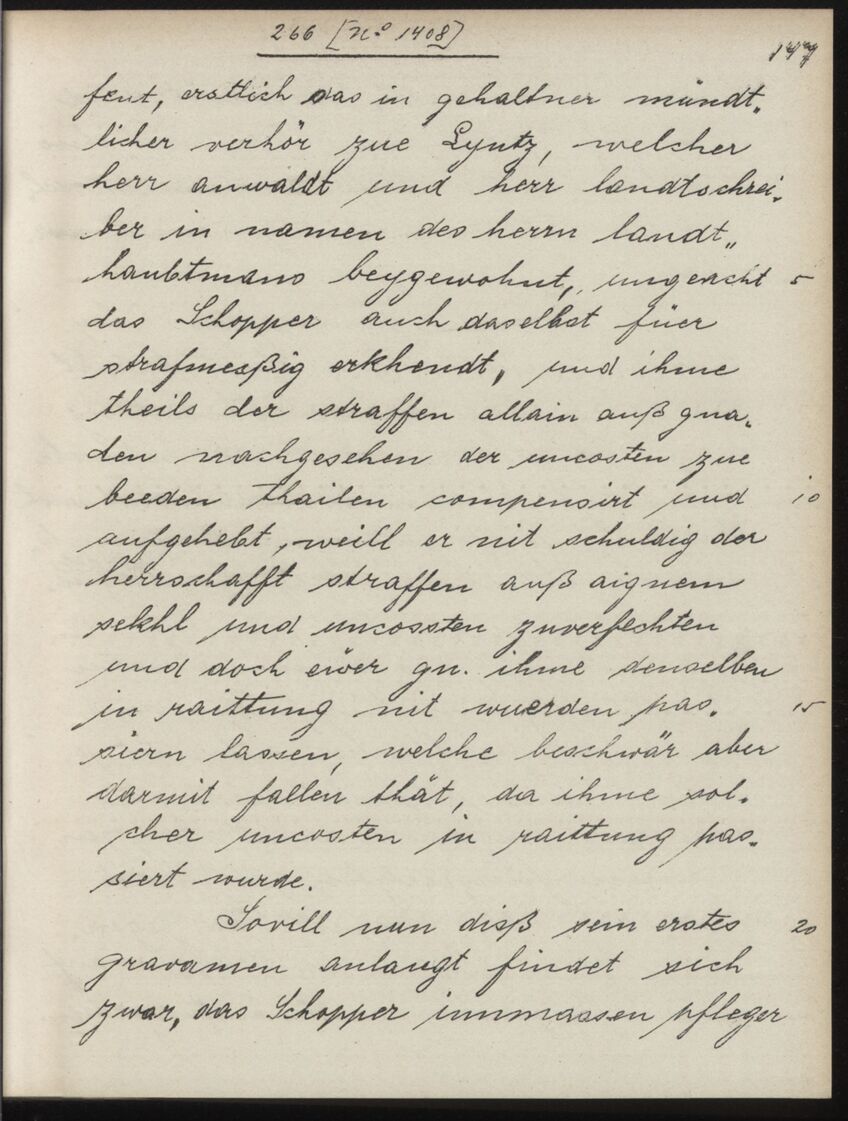 266 [No 1408]
147
fent, erstlich das in gehaltner mündt„
licher verhör zue Lyntz, welcher
herr anwaldt und herr landtschrei„
ber in namen des herrn landt„
haubtmans beygewohnt, ungeacht 5
das Schopper auch daselbst füer
strafmeßig erkhendt, und ihme
theils der straffen allain auß gna„
den nachgesehen der uncosten zue
beeden thailen compensirt und 10
aufgehebt, weill er nit schuldig der
herrschafft straffen auß aignem
sekhl und uncossten zuverfechten
und doch eiwer gn. ihme denselben
in raittung nit wuerden pas„ 15
siern lassen, welche beschwär aber
darmit fallen thät, da ihme sol„
cher uncosten in raittung pas„
siert wurde.
Sovill nun diß sein erstes 20
gravamen anlangt findet sich
zwar, das Schopper inmassen pfleger